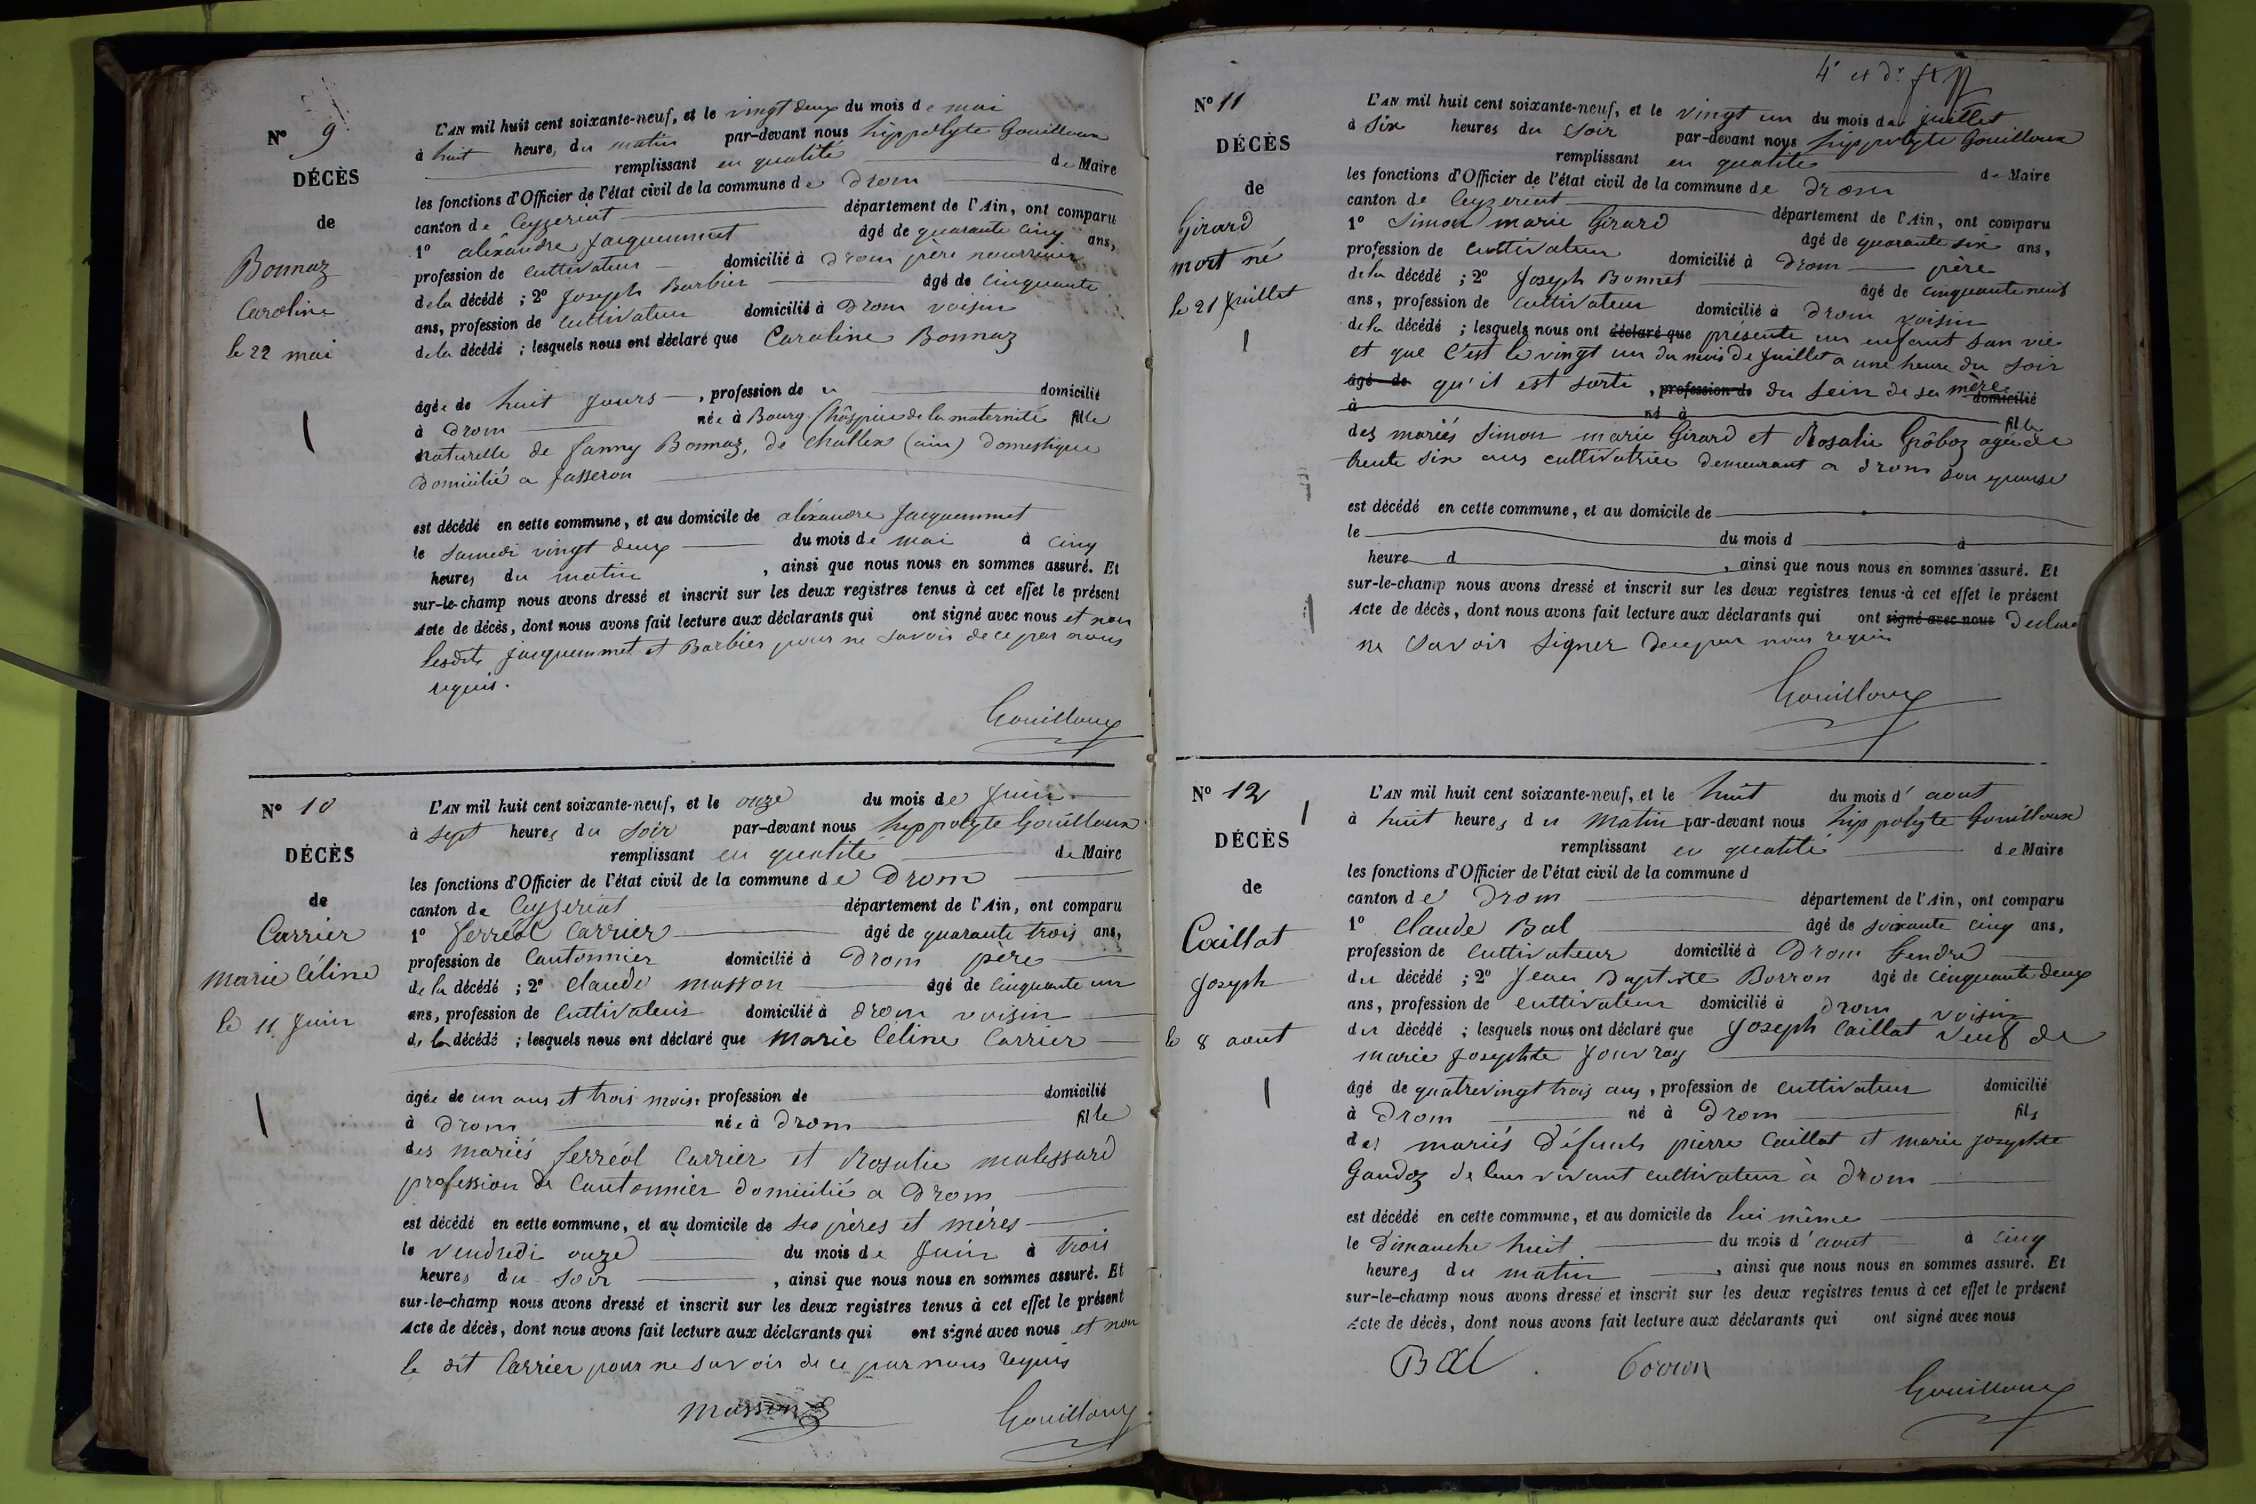 N° 9
DÉCÈS
de
Bonnaz
Caroline
le 22 mai
L'AN mil huit cent soixante-neuf, et le vingt deux du mois de mai
à huit heures du matin par-devant nous hippolyte Gouilloux
remplissant en qualité de Maire
les fonctions d'Officier de l'état civil de la commune de Drom
canton de Ceyzeriat département de l'Ain, ont comparu
1° aléxandre Jacquemmet âgé de quarante cinq ans,
profession de cultivateur domicilié à Drom père nourricier
de la décédé ; 2° Joseph Barbier âgé de cinquante
ans, profession de cultivateur domicilié à Drom voisin
de la décédé ; lesquels nous ont déclaré que Caroline Bonnaz
âgée de huit jours, profession de domicilié
à Drom née à Bourg (hôspice de la maternité fille
naturelle de fanny Bonnaz, de Challex (ain) Domestique
Domicilié a Jasseron
est décédé en cette commune, et au domicile de aléxandre Jacquemmet
le samedi vingt deux du mois de mai à cinq
heures du matin, ainsi que nous nous en sommes assuré. Et
sur-le-champ nous avons dressé et inscrit sur les deux registres tenus à cet effet le présent
Acte de décès, dont nous avons fait lecture aux déclarants qui ont signé avec nous et non
lesdits Jacquemmet et Barbier pour ne savoir de ce par nous
requis.
Gouilloux
N° 10
DÉCÈS
de
Carrier
Marie Céline
le 11 Juin
L'AN mil huit cent soixante-neuf, et le onze du mois de Juin
à sept heures du soir par-devant nous hippolyte Gouilloux
remplissant en qualité de Maire
les fonctions d'Officier de l'état civil de la commune de Drom
canton de Ceyzeriat département de l'Ain, ont comparu
1° ferréol Carrier âgé de quarante trois ans,
profession de Cantonnier domicilié à Drom père
de la décédé ; 2° Claude masson âgé de cinquante un
ans, profession de cultivateur domicilié à Drom voisin
de la décédé ; lesquels nous ont déclaré que Marie Céline Carrier
âgée de un ans et trois mois, profession de domicilié
à Drom née à Drom fille
des mariés ferréol Carrier et Rosalie malessard
profession de Cantonnier Domicilié a Drom
est décédé en cette commune, et au domicile de ses pères et mères
le vendredi onze du mois de Juin à trois
heures du soir, ainsi que nous nous en sommes assuré. Et
sur-le-champ nous avons dressé et inscrit sur les deux registres tenus à cet effet le présent
Acte de décès, dont nous avons fait lecture aux déclarants qui ont signé avec nous et non
le dit Carrier pour ne savoir de ce par nous requis
Masson
Gouilloux
4e et dr
N° 11
DÉCÈS
de
Girard
mort né
le 21 Juillet
L'AN mil huit cent soixante-neuf, et le vingt un du mois de juillet
à six heures du soir par-devant nous hippolyte Gouilloux
remplissant en qualité de Maire
les fonctions d'Officier de l'état civil de la commune de Drom
canton de Ceyzeriat département de l'Ain, ont comparu
1° Simon marie Girard âgé de quarante six ans,
profession de cultivateur domicilié à Drom père
de la décédé ; 2° Joseph Bonnet âgé de cinquante neuf
ans, profession de cultivateur domicilié à Drom voisin
de la décédé ; lesquels nous ont déclaré que présente un enfant san vie
et que c'est le vingt un du mois de Juillet a une heure du soir
âgé de qu'il est sorti, profession de du sein de sa mère domicilié
à né à fille
des mariés Simon marie Girard et Rosalie Grôboz agée de
trente six ans cultivatrice demeurant a Drom son epouse
est décédé en cette commune, et au domicile de
le du mois d à
heure d, ainsi que nous nous en sommes assuré. Et
sur-le-champ nous avons dressé et inscrit sur les deux registres tenus à cet effet le présent
Acte de décès, dont nous avons fait lecture aux déclarants qui ont signé avec nous Declaré
ne savoir signer de ce par nous requis
Gouilloux
N° 12
DÉCÈS
de
Caillat
Joseph
le 8 aout
L'AN mil huit cent soixante-neuf, et le huit du mois d'aout
à huit heures du Matin par-devant nous hippolyte Gouilloux
remplissant en qualité de Maire
les fonctions d'Officier de l'état civil de la commune d
canton de Drom département de l'Ain, ont comparu
1° Claude Bal âgé de soixante cinq ans,
profession de cultivateur domicilié à Drom Gendre
du décédé ; 2° Jean Baptiste Borron âgé de cinquante deux
ans, profession de cultivateur domicilié à Drom voisin
du décédé ; lesquels nous ont déclaré que Joseph Caillat veuf de
marie Josephte Jouvray
âgé de quatrevingt trois ans, profession de cultivateur domicilié
à Drom né à Drom fils
des mariés Défunts pierre Caillat et marie josephte
Gandoz de leur vivant cultivateur à Drom
est décédé en cette commune, et au domicile de lui même
le Dimanche huit du mois d'aout à cinq
heures du matin, ainsi que nous nous en sommes assuré. Et
sur-le-champ nous avons dressé et inscrit sur les deux registres tenus à cet effet le présent
Acte de décès, dont nous avons fait lecture aux déclarants qui ont signé avec nous
Bal
Gouilloux